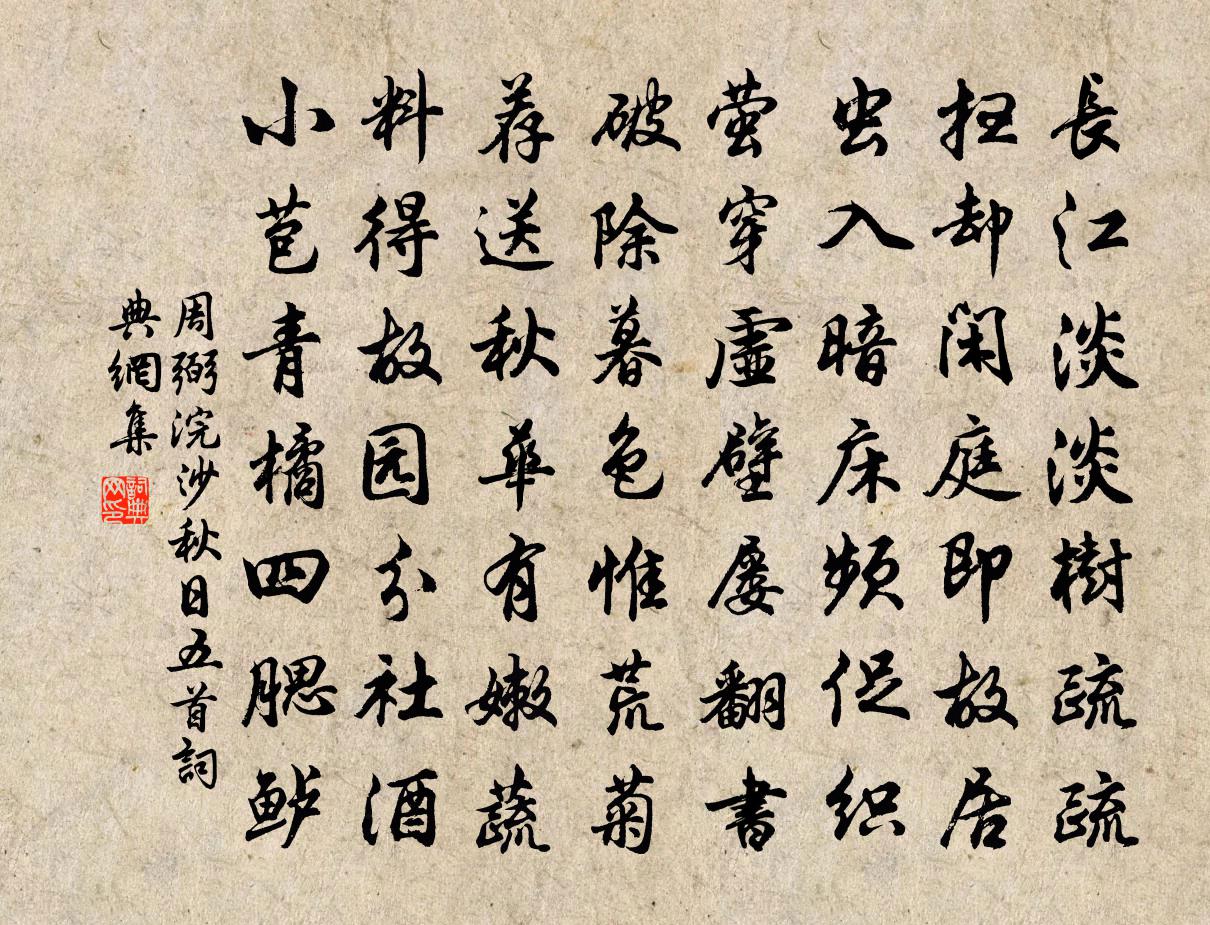 長江淡淡樹疏疏
扫却闲庭即故居
虫入暗床频促织
萤穿虚壁屡翻书
破除暮色惟荒菊
荐送秋华有嫩蔬
料得故园分社酒
小苞青橘四腮鲈
周弼浣沙秋日五首詞
典網集
詞典
网印